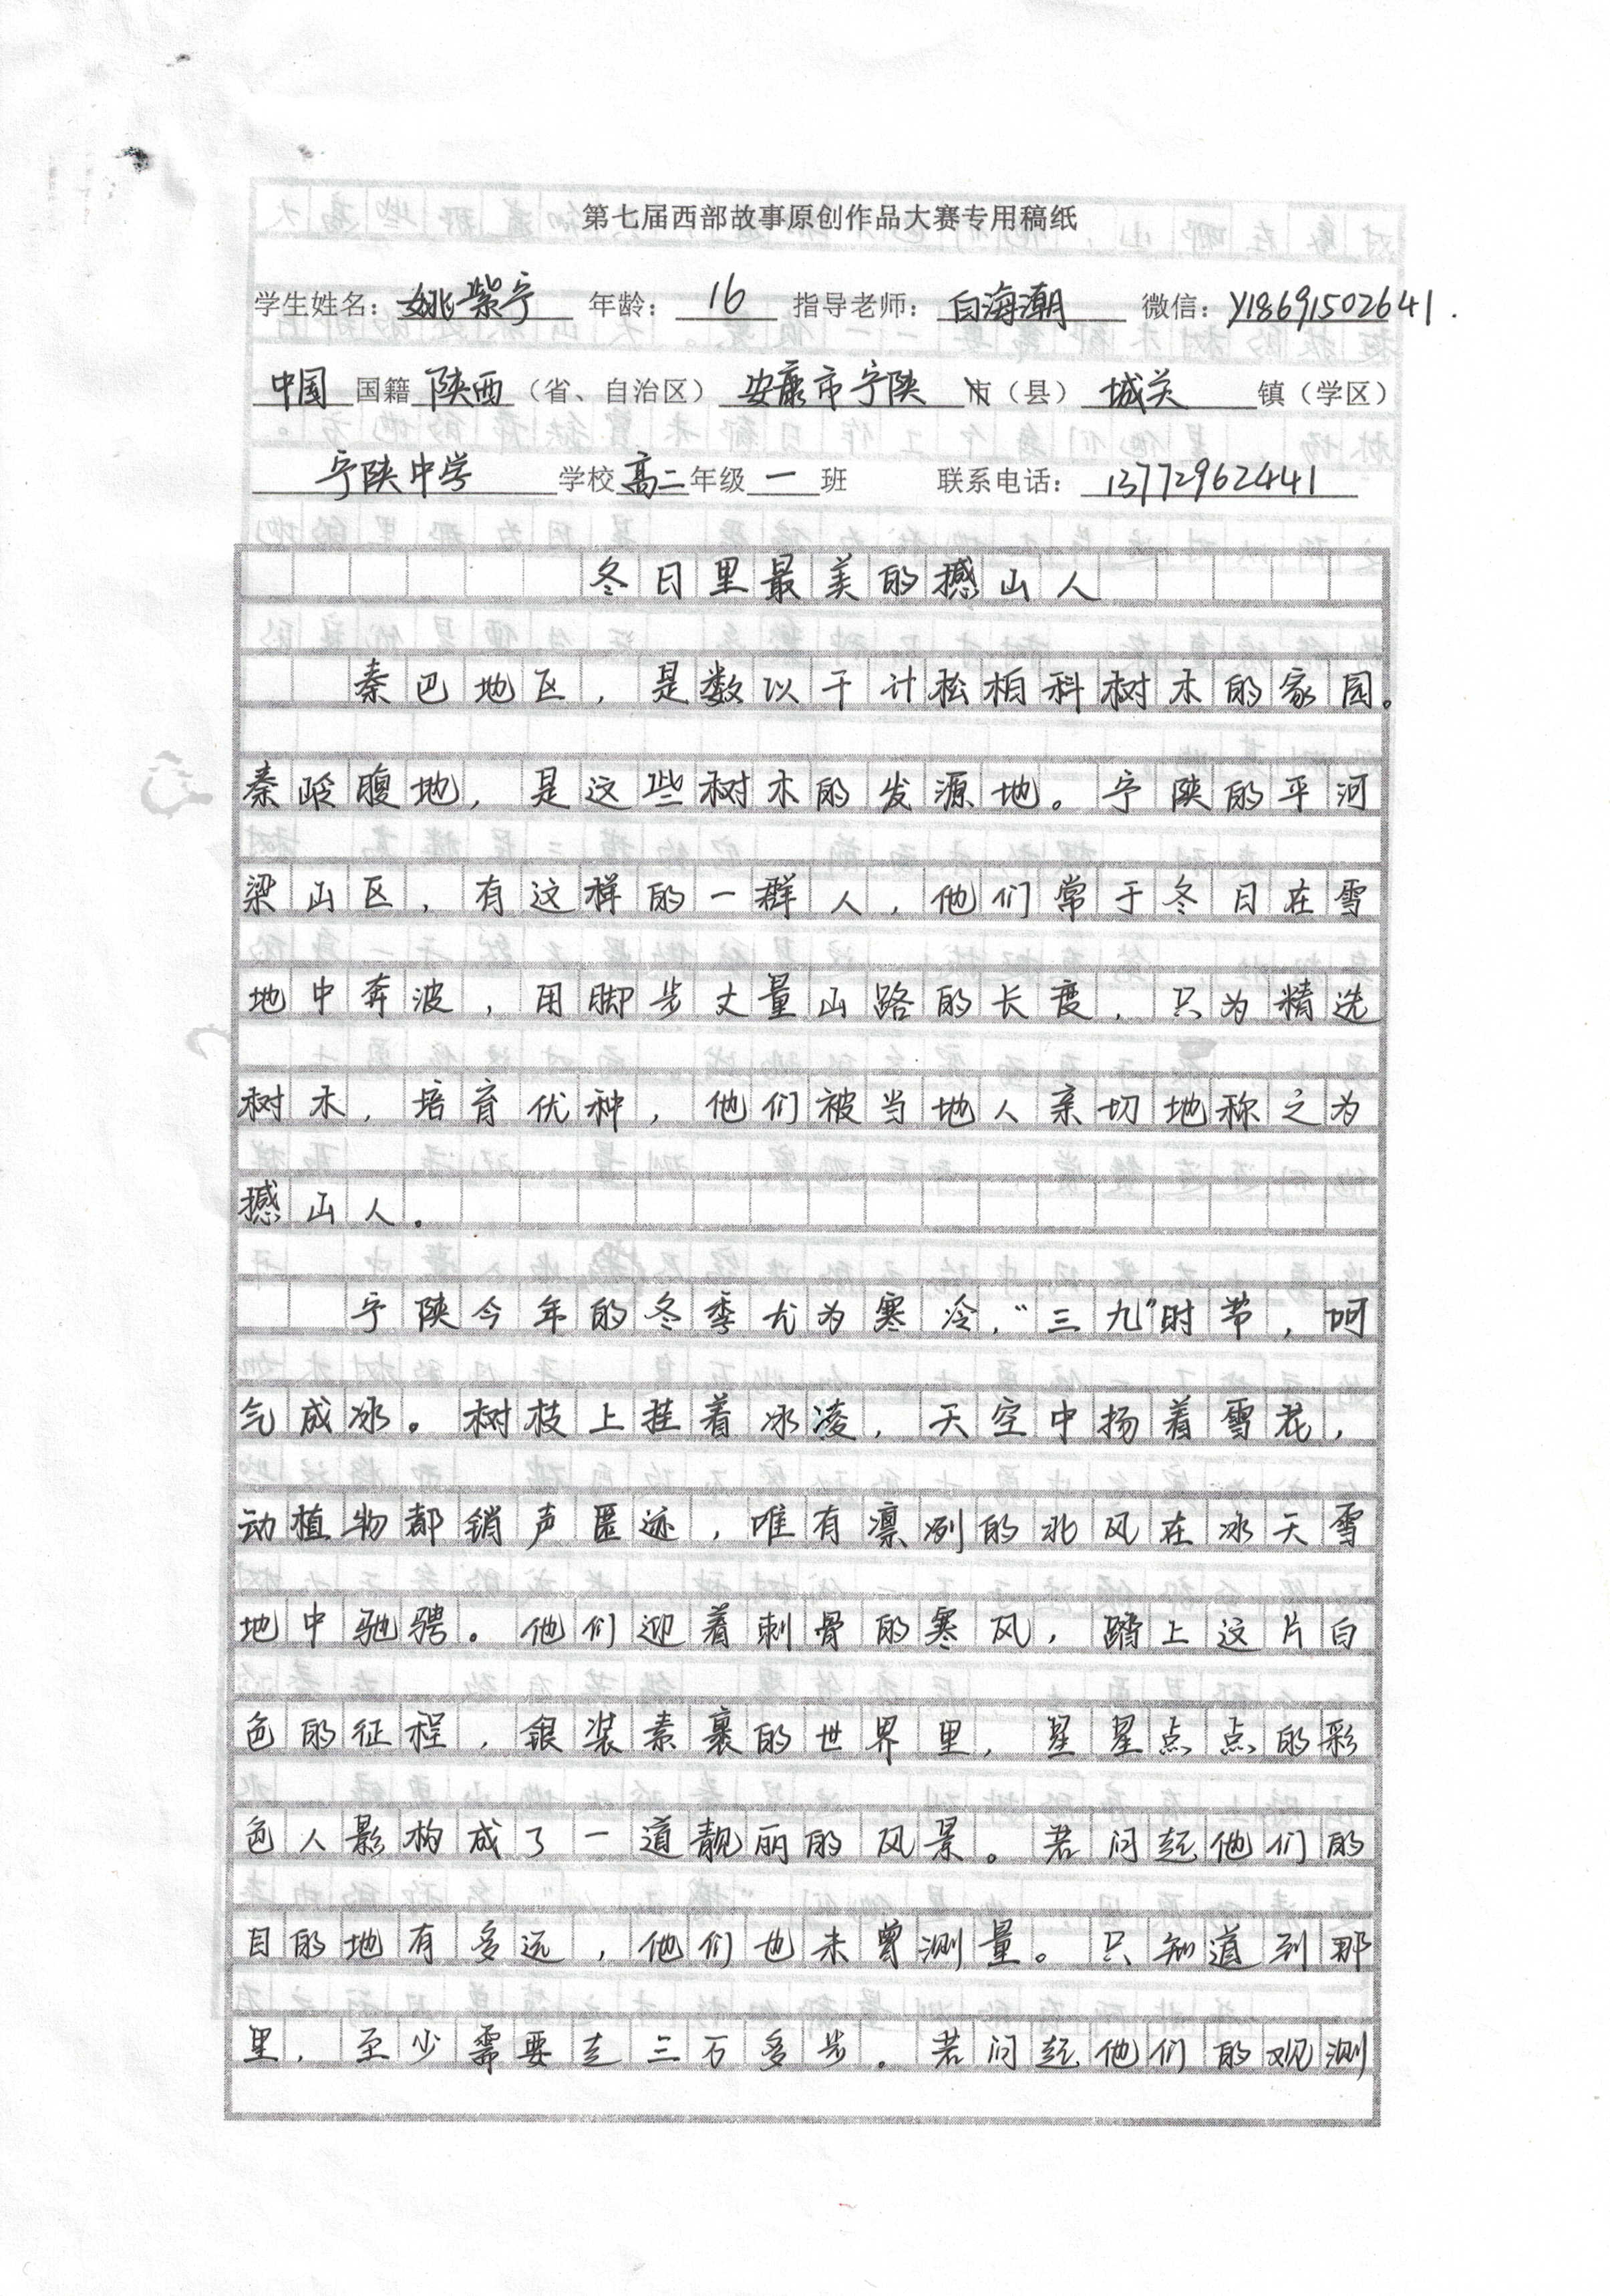 第七届西部故事原创作品大赛专用稿纸
学生姓名：姚紫宁 年龄：16 指导老师：白海潮 微信：y18691502641.
中国国籍陕西（省、自治区）安康市宁陕市（县）城关镇（学区）
宁陕中学学校高二年级一班 联系电话：13772962441
冬日里最美的撼山人
秦巴地区，是数以千计松柏科树木的家园。
秦岭腹地，是这些树木的发源地。宁陕的平河
梁山区，有这样的一群人，他们常于冬日在雪
地中奔波，用脚步丈量山路的长度，只为精选
树木，培育优种，他们被当地人亲切地称之为
撼山人。
宁陕今年的冬季尤为寒冷，“三九”时节，呵
气成冰。树枝上挂着冰凌，天空中扬着雪花，
动植物都销声匿迹，唯有凛冽的北风在冰天雪
地中驰骋。他们迎着刺骨的寒风，踏上这片白
色的征程，银装素裹的世界里，星星点点的彩
色人影构成了一道靓丽的风景。若问起他们的
目的地有多远，他们也未曾测量。只知道到那
里，至少需要走三万多步。若问起他们的观测